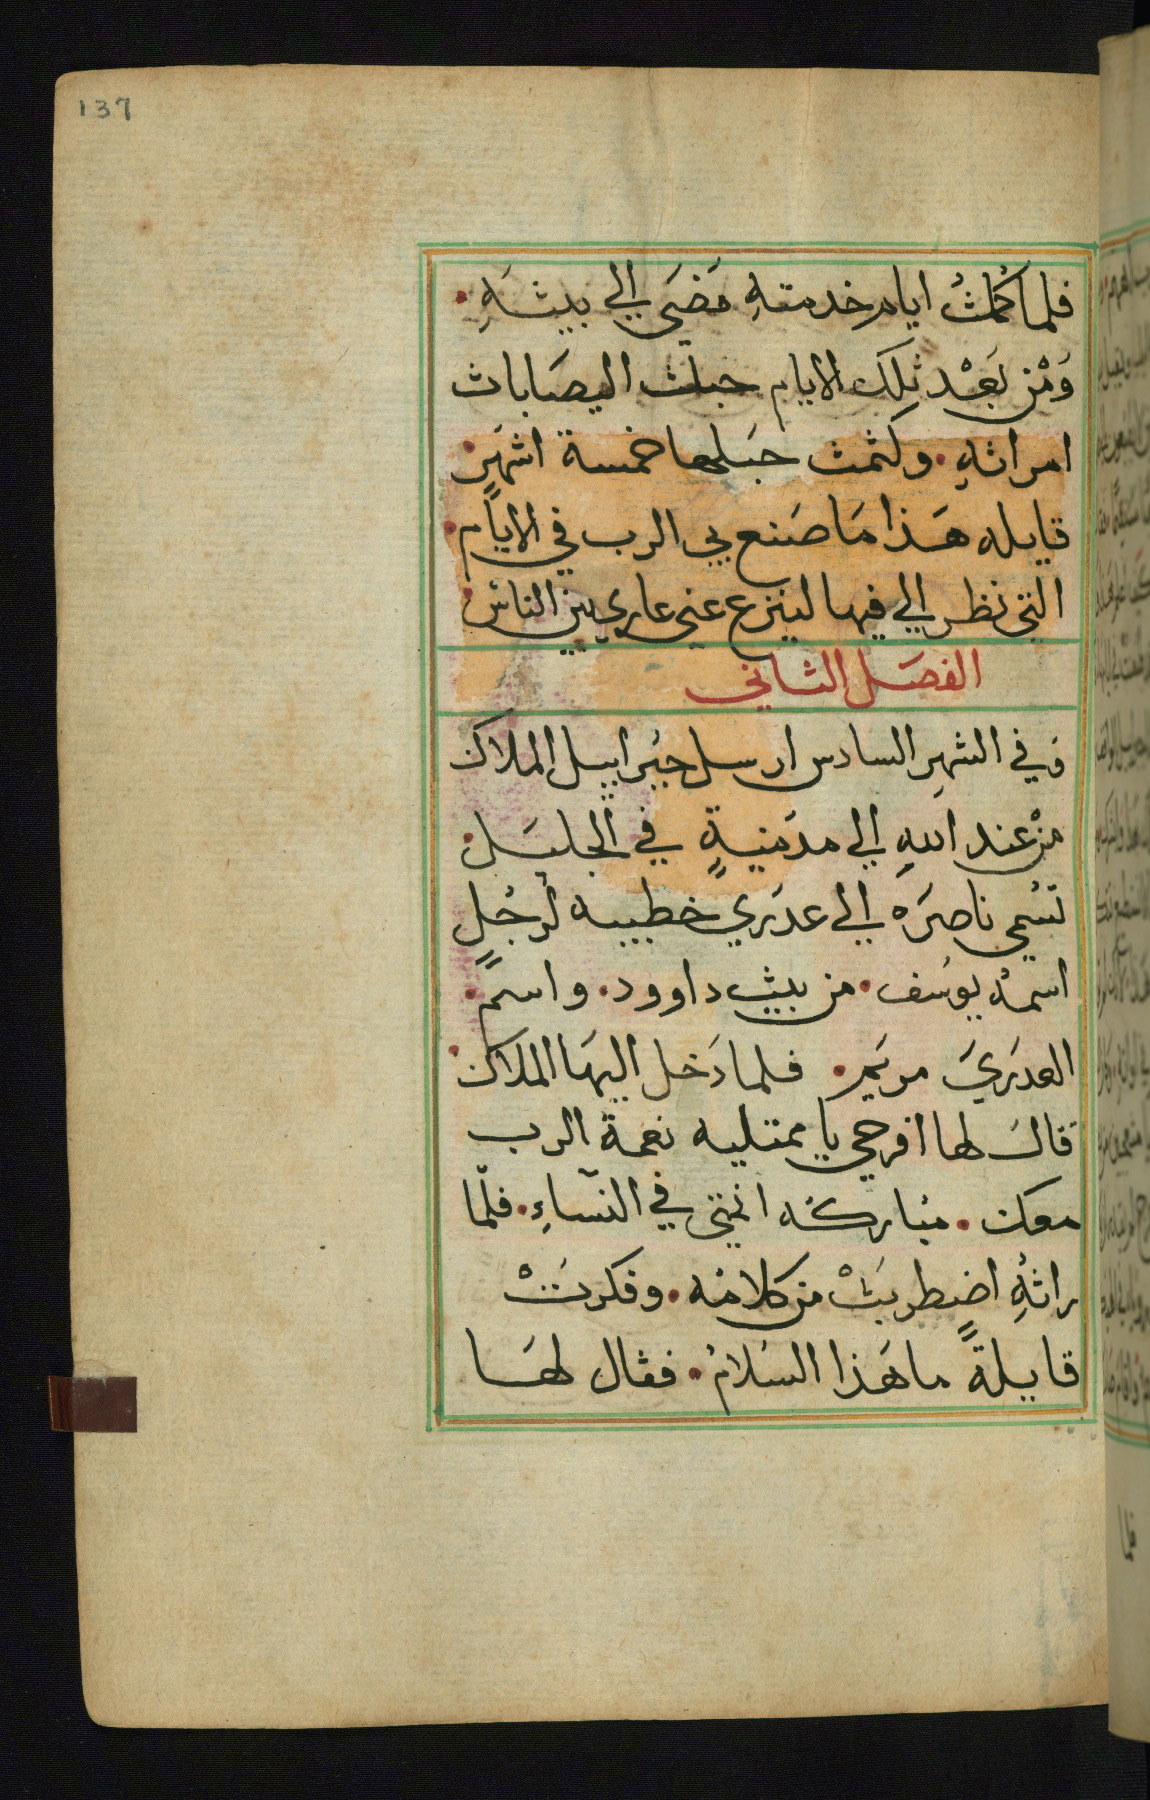 137
فلما كملث ايام خدمتهِ مَضَي الي بيثَهِ
وَمْن بَعْد ثِلكَ الايام حبلث اليصَاباث
امراثهِ. وكثمث حَبلها خمسة اشهَرٍ
قايله هَذا مَا صَنع بي الرب في الايام
التي نظر الي فيها لينزع عني عاري بين الناس
الفصَل الثاني
وَفي الشهِر السادس ارسل جبُراييل الملاك
منْ عند اللهِ الي مدَينةٍ في الجليَل
تسُمي ناصرَه الي عدَري خطيبه لرُجُلٍ
اسمهُ يوسُف. من بيث داوود. واسم
العدَريَ مريَم. فلما دَخل اليهَا الملاك
قالَ لها افرحي يا ممتليه نعمةً الرب
معك. مُباركه انتي في النسآءِ. فلمّا
راثهُ اضِطربَثْ من كلامُه. وفكرَتْ
قايلةً ما هَذا السَلامُ. فقال لهَا
فلما